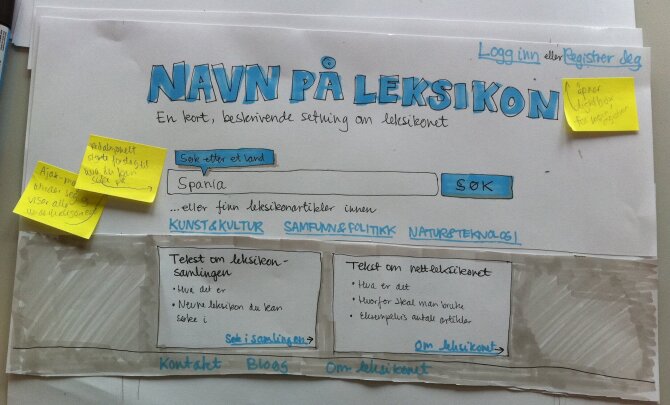 Logg inn eller Registrer deg
NAVN PÅ LEKSIKON
En kort, beskrivende setning om leksikonet
åpner
for
redaksjonelt
styrte forslag til
hva du kan
søke på
Ajax-
viser alle
Søk etter et land
Spania
SØK
...eller finn leksikonartikler innen
KUNST&KULTUR SAMFUNN&POLITIKK NATUR&TEKNOLOGI
Tekst om leksikon-
samlingen
• Hva det er
• Nevne leksikon du kan
søke i
Søk i samlingen →
Tekst om nettleksikonet
• Hva er det
• Hvorfor skal man bruke
• Eksempelvis antall artikler
Om leksikonet →
Kontakt Blogg Om leksikonet